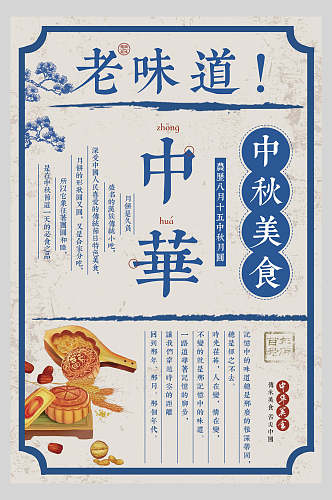 老味道！
zhōng
中
huá
華
中秋美食
農歷八月十五中秋月圓
月餅是久負
盛名的漢族傳統小吃，
深受中國人民喜愛的傳統節日特色美食，
月餅的形狀圓又圓，又是合家分吃，
所以它象征著團圓和睦，
是在中秋節這一天的必食之品。
記憶中的味道總是那麽的根深蒂固，
總是揮之不去。
時光荏苒，人在變，情在變，
不變的就是那記憶中的味道。
一路追尋著記憶的腳步，
讓我們穿越時舍的距離
回到那年、那月、那個年代。
百年老店
中华美食
傳承美食 舌尖中國